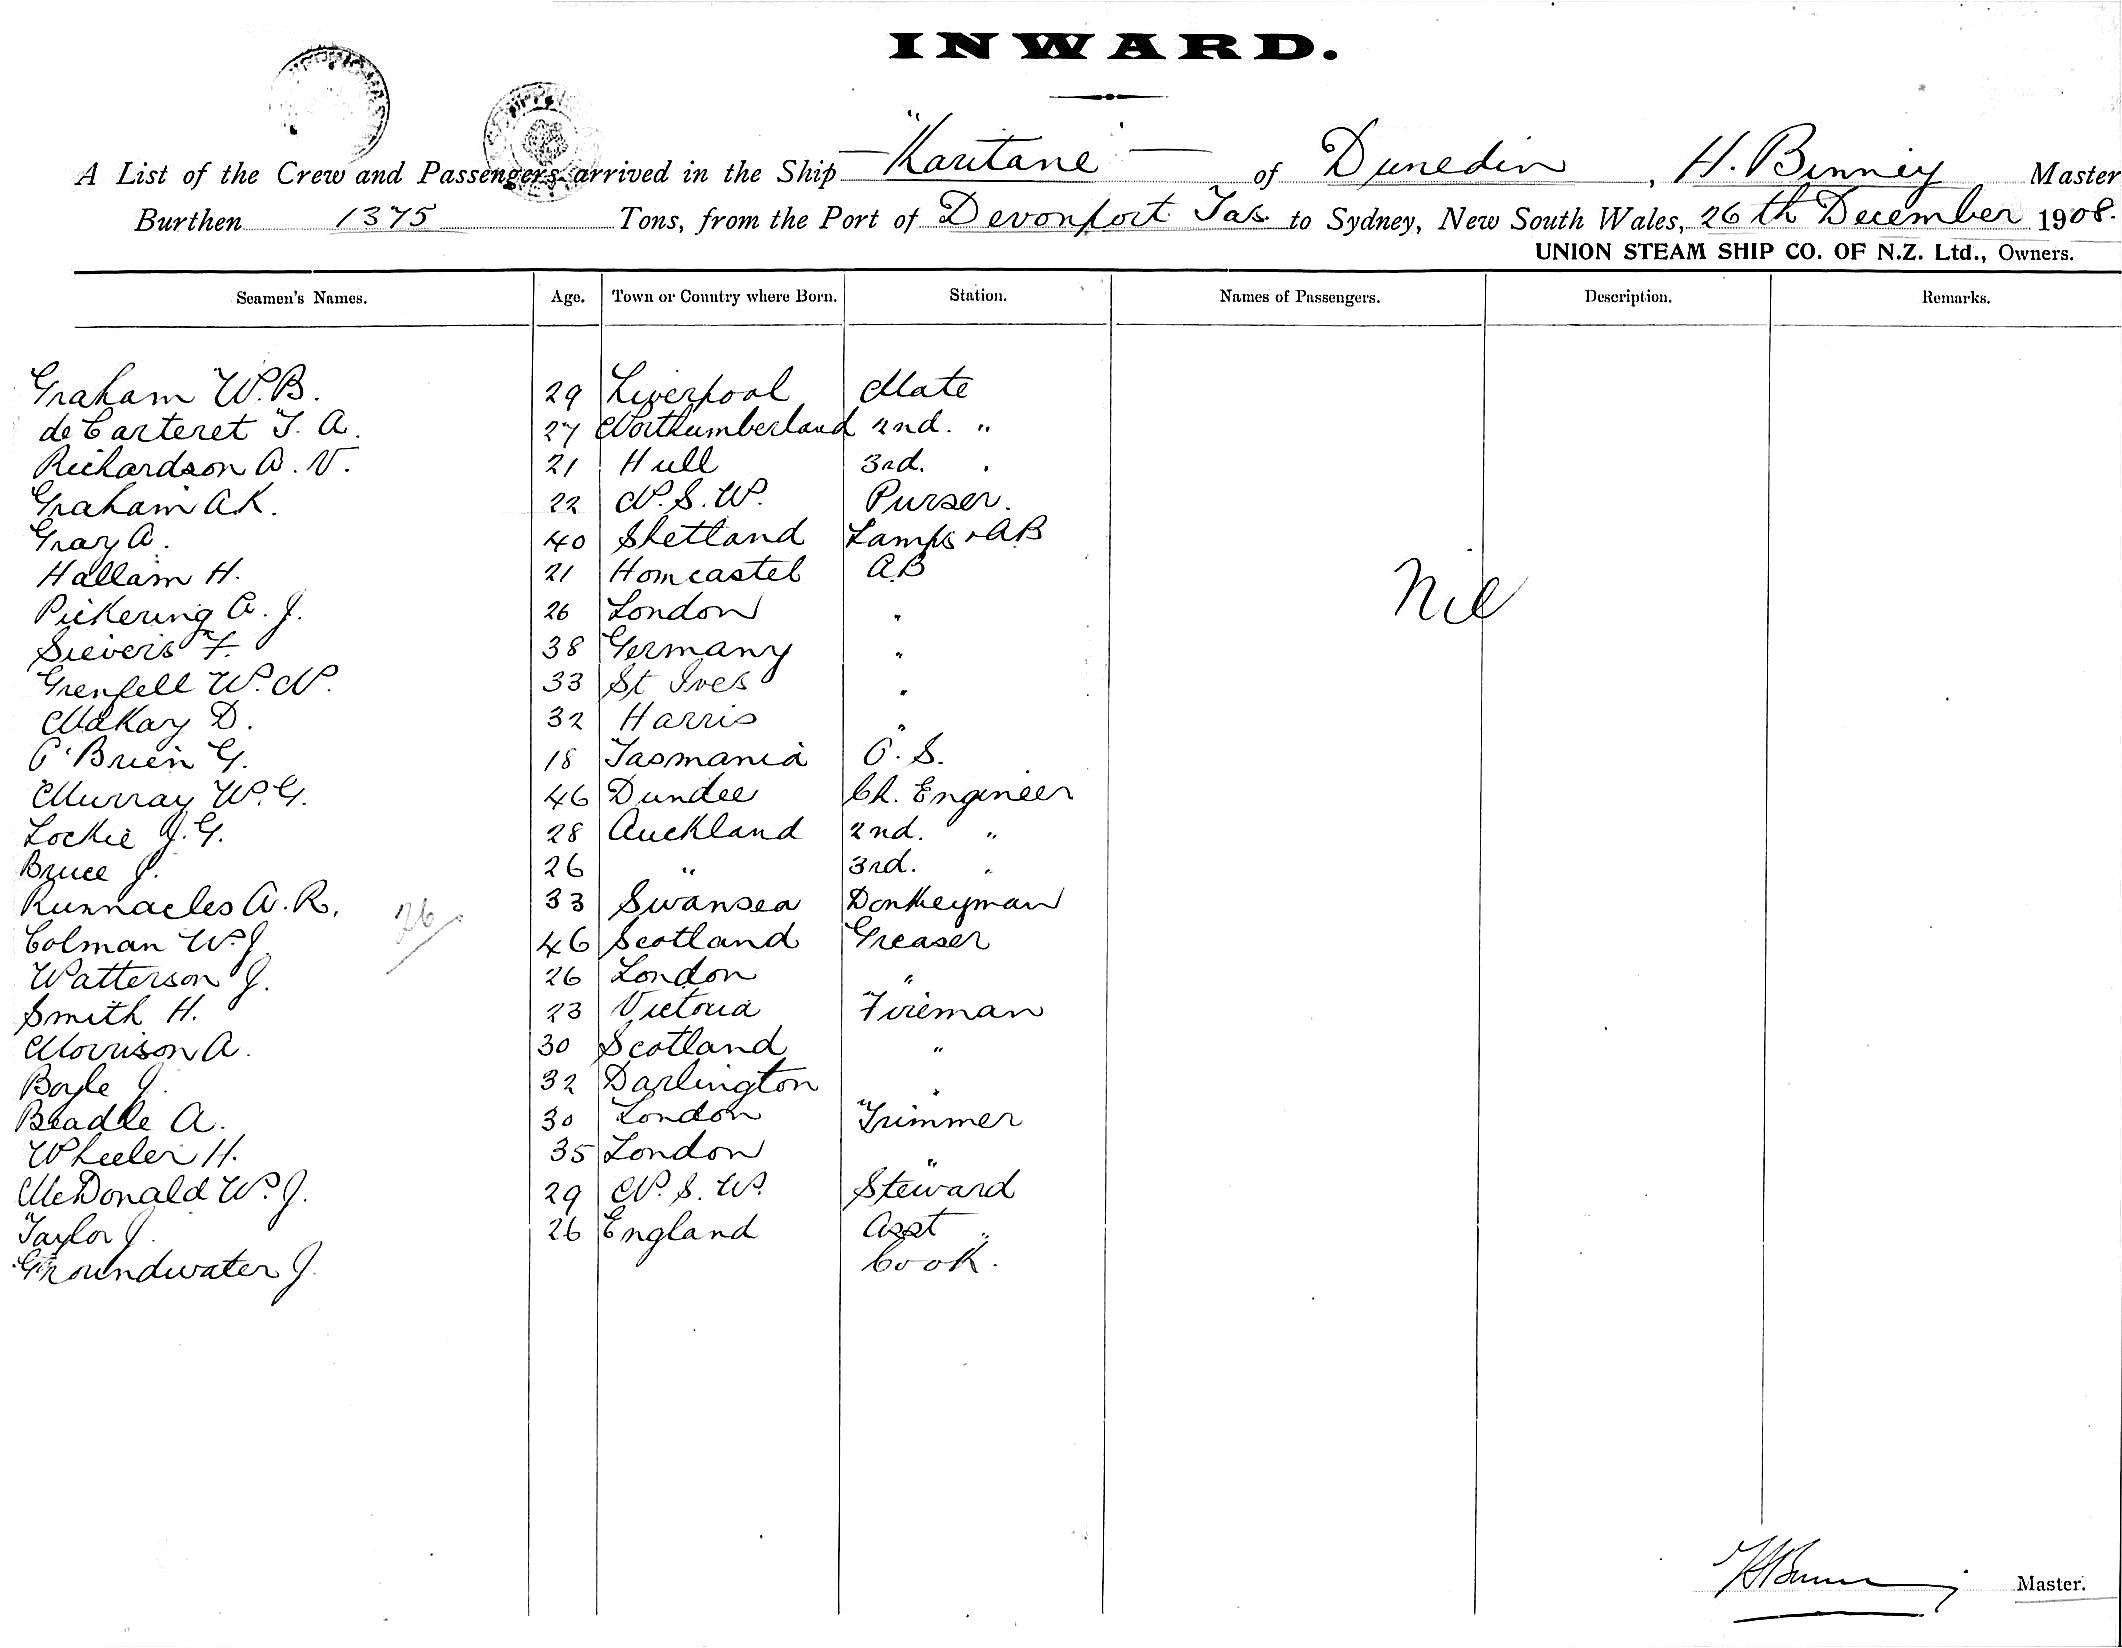 INWARD.
A List of the Crew and Passengers arrived in the Ship "Karitane" of Dunedin, H. Binney Master
Burthen 1375 Tons, from the Port of Devonport Tas. to Sydney, New South Wales, 26th December 1908.
UNION STEAM SHIP CO. OF N.Z. Ltd., Owners.
Seamen's Names. Age. Town or Country where Born. Station. Names of Passengers. Description. Remarks.
Graham W.B. 29 Liverpool Mate
de Carteret T. A. 27 Northumberland 2nd. "
Richardson A. V. 21 Hull 3rd. "
Graham A.K. 22 N.S.W. Purser.
Gray A. 40 Shetland Lamps & AB
Hallam H. 21 Horncastel A.B
Pickering A. J. 26 London "
Sievers F. 38 Germany "
Grenfell W. N. 33 St Ives "
McKay D. 32 Harris "
O'Brien G. 18 Tasmania O. S.
Murray W. G. 46 Dundee Ch. Engineer
Lockie J. G. 28 Auckland 2nd. "
Bruce J. 26 " 3rd. "
Runnacles A. R. 33 Swansea Donkeyman
Colman W. J. 46 Scotland Greaser
Watterson J. 26 London "
Smith H. 23 Victoria Fireman
Morrison A. 30 Scotland "
Boyle J. 32 Darlington "
Beadle A. 30 London Trimmer
Wheeler H. 35 London "
McDonald W. J. 29 N. S. W. Steward
Taylor J. 26 England Asst "
Groundwater J. Cook.
Nil
26
H Binney Master.